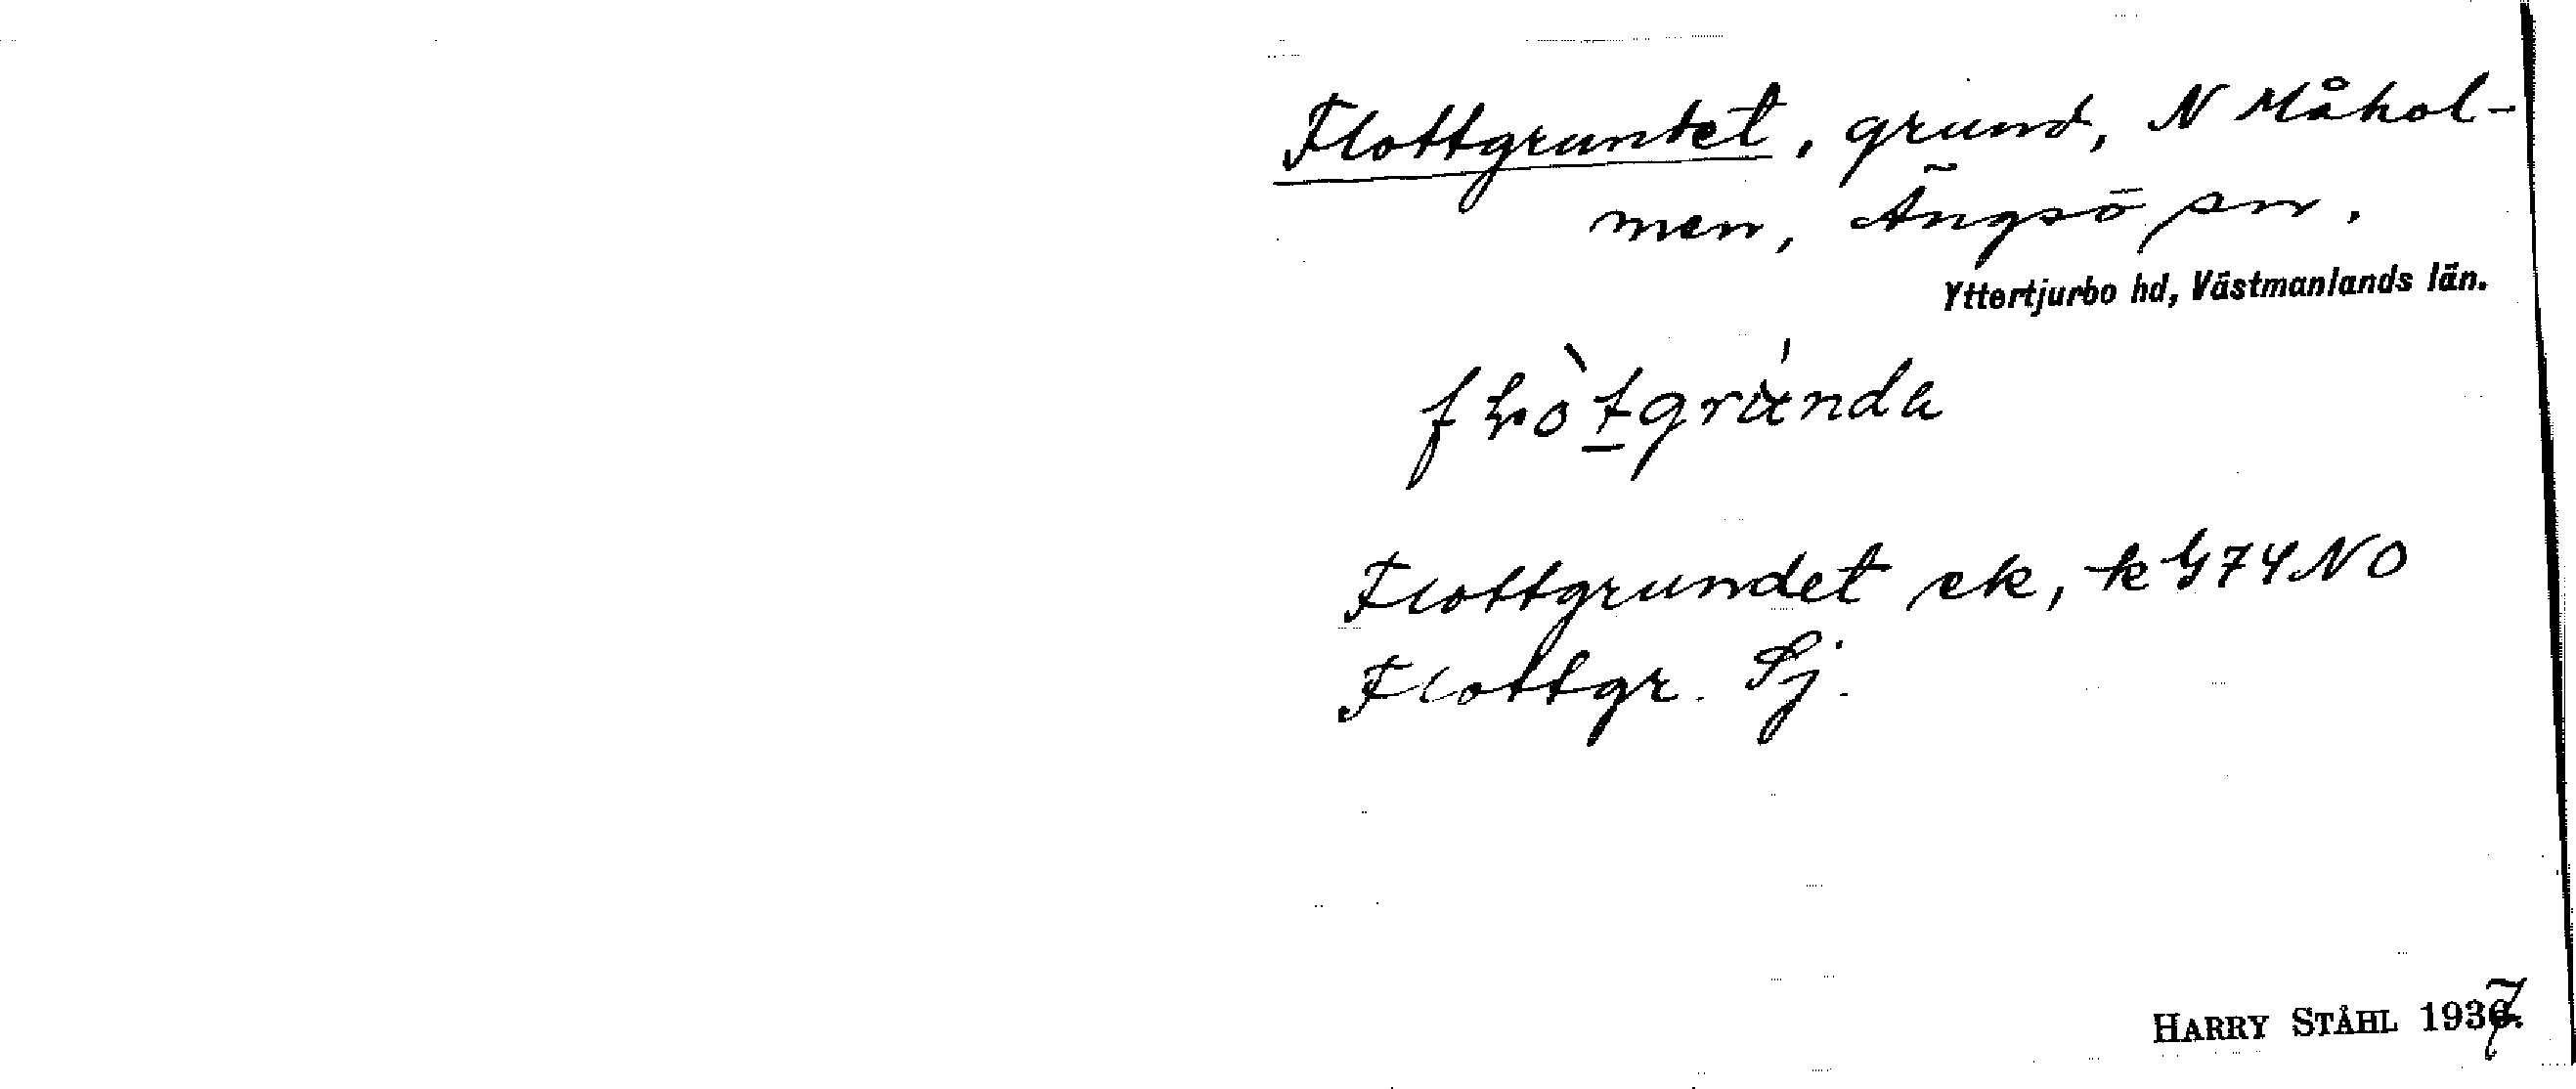 Flottgrundet, grund, N Måhol-
men, Ängsö sn.
Yttertjurbo hd, Västmanlands län.
Flottgrundet ek, k G74NO
Flottgr. Sj.
HARRY STÅHL 1937.